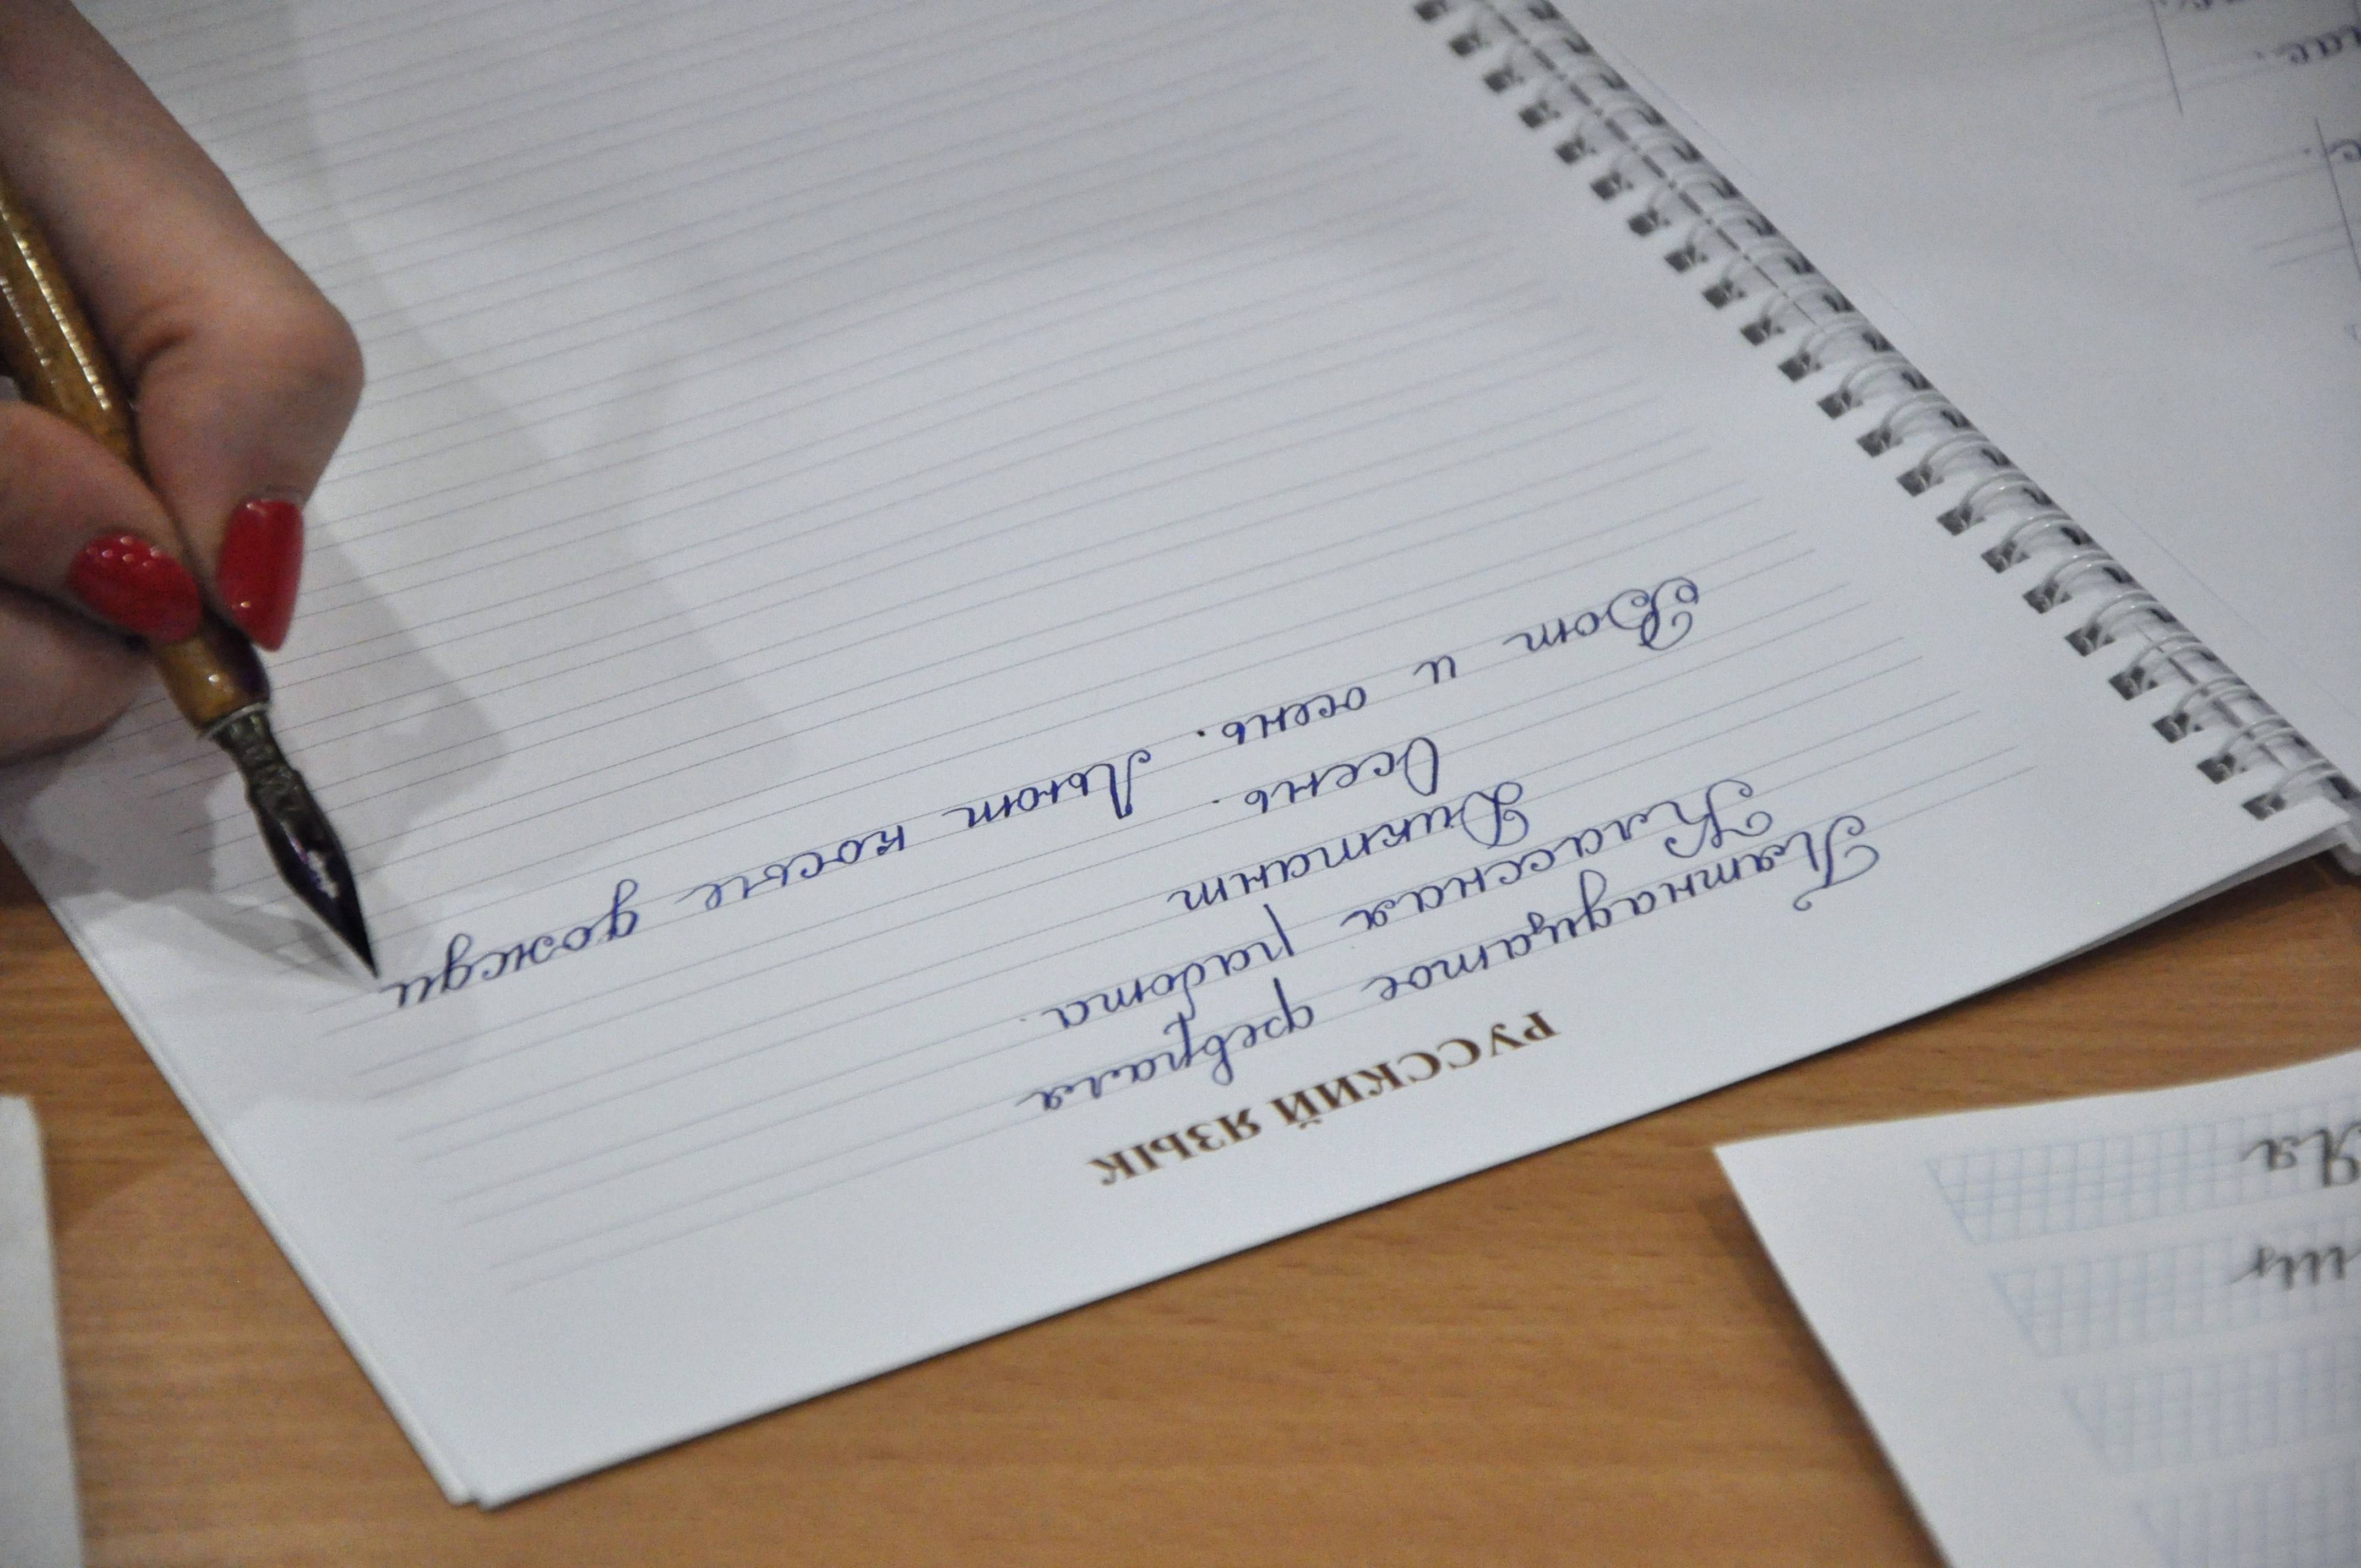 РУССКИЙ ЯЗЫК
Пятнадцатое февраля
Классная работа.
Диктант
Осень.
Вот и осень. Льют косые дожди
Яя